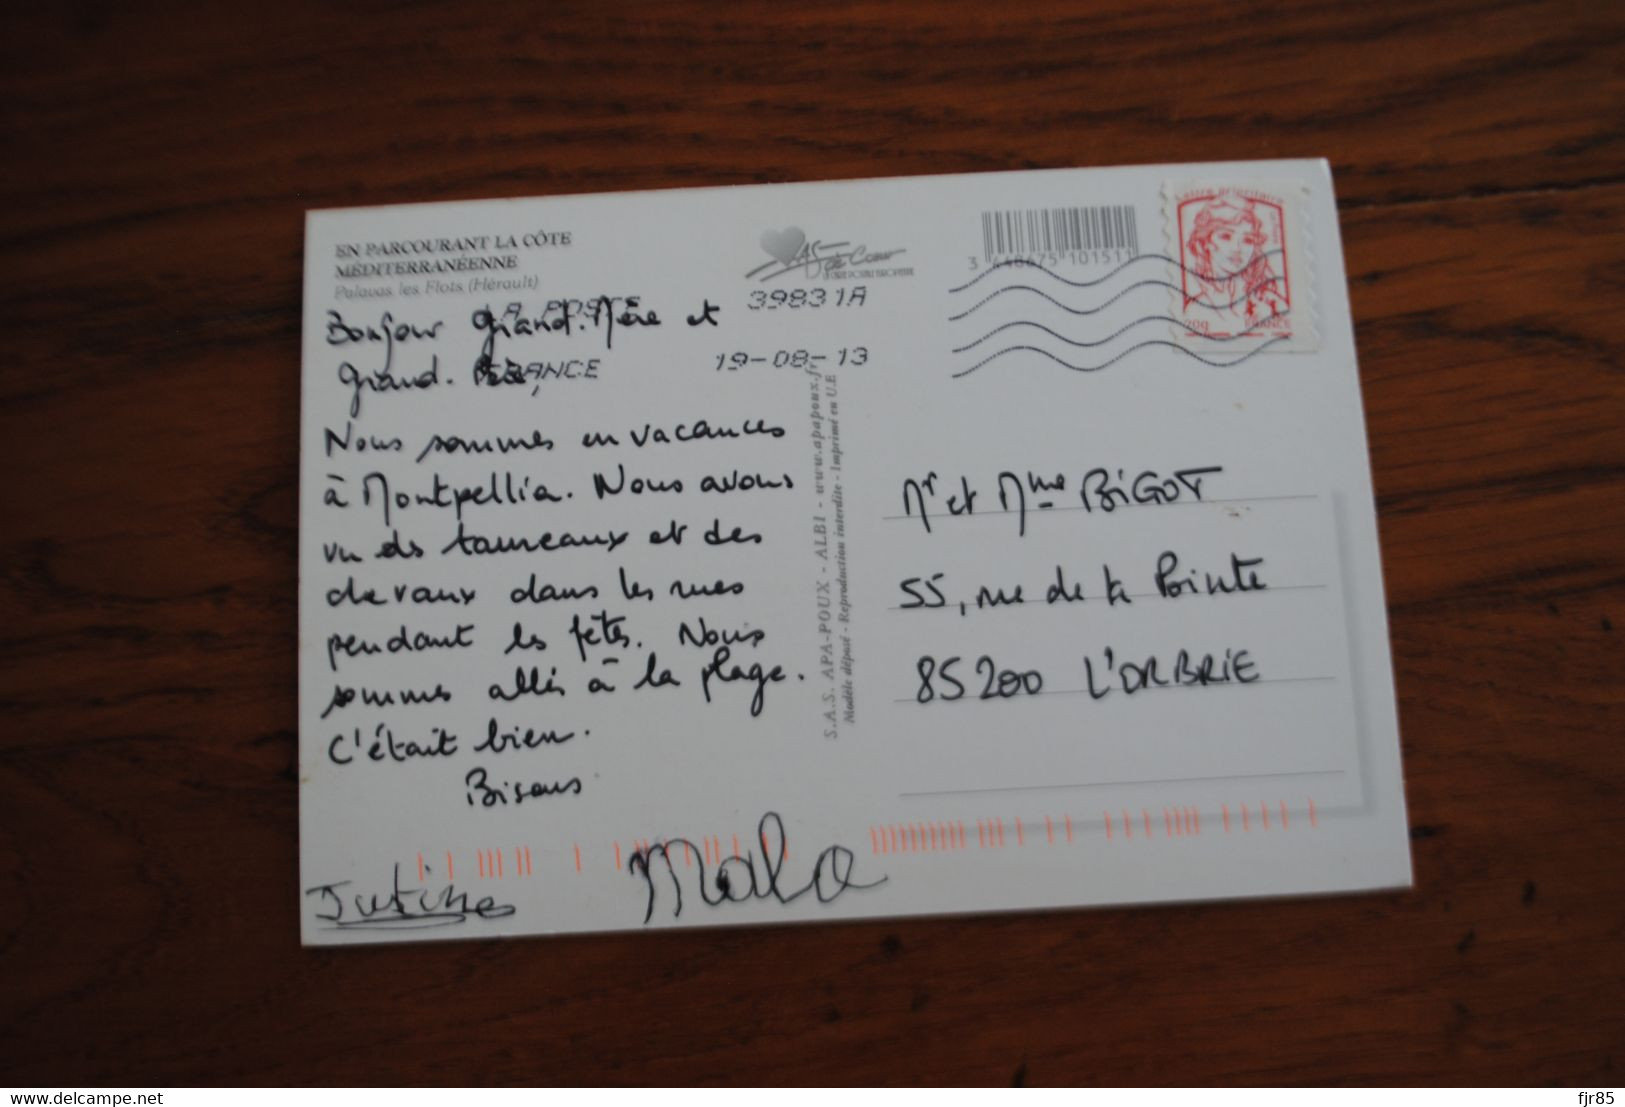 EN PARCOURANT LA CÔTE
MÉDITERRANÉENNE
Palavas les Flots (Hérault)
LA POSTE
39831A
FRANCE
19-08-13
Bonjour Grand-Mère et
Grand-Père,
Nous sommes en vacances
à Montpellia. Nous avons
vu des taureaux et des
chevaux dans les rues
pendant les fêtes. Nous
sommes allés à la plage.
C'était bien.
Bisous
Justine
Malo
AS de Cœur
LA CARTE POSTALE EUROPÉENNE
3 448675 101511
Lettre prioritaire
20g FRANCE
S.A.S. APA-POUX - ALBI - www.apapoux.fr
Modèle déposé - Reproduction interdite - Imprimé en U.E
Mr et Mme BIGOT
55, rue de la Pointe
85200 L'ORBRIE
delcampe.net
fjr85